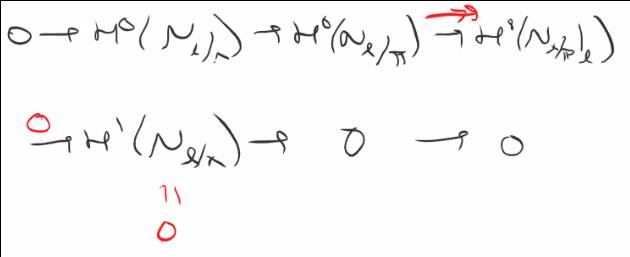 0 → H⁰(N_{l/x}) → H⁰(N_{l/π}) → H⁰(N_{x/π}|_l)
0 → H¹(N_{l/x}) → 0 → 0
||
0